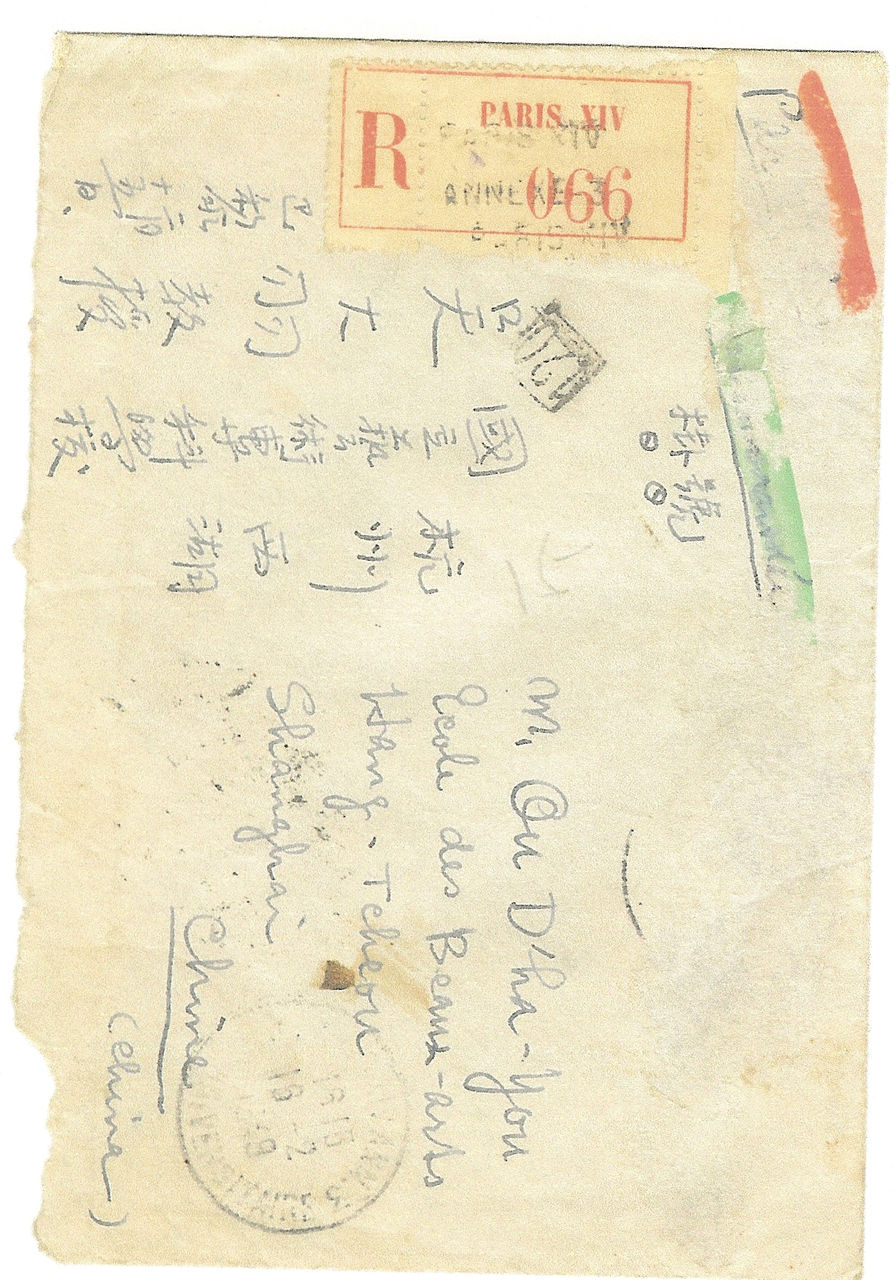 R PARIS XIV
066
PARIS XIV
ANNEXE 3
PARIS XIV
掛號
杭州西湖
國立藝術專科學校
吴大羽教授
巴黎
M. Ou D'ha-You
Ecole des Beaux-arts
Hang-Tcheou
Shanghai
Chine
(China)